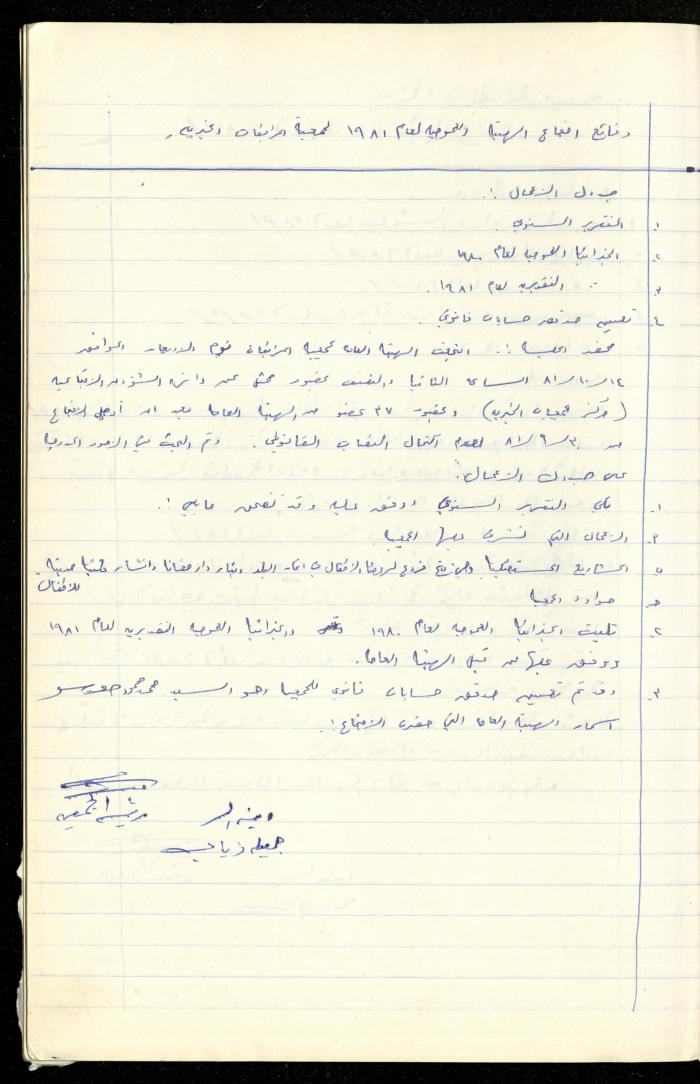 وقائع اجتماع الهيئة العمومية لعام ١٩٨١ لجمعية الخيرية
جدول الأعمال :.
١. التقرير السنوي
٢. الميزانية العمومية لعام ١٩٨٠
٣. " التقديرية لعام ١٩٨١.
٤. تعيين مدقق حسابات قانوني.
محضر الجلسة :. اجتمعت الهيئة العامة لجمعية يوم الاربعاء الموافق
١٤/١٠/٨١ الساعة الثانية والنصف بحضور ممثل عن دائرة الشؤون الاجتماعية
(مركز الجمعيات الخيرية) وبحضور ٣٧ عضو من الهيئة العامة بعد ان أجل الاجتماع
من ٣٠/٩/٨١ لعدم اكتمال النصاب القانوني. وتم البحث في الأمور المدرجة
على جدول الأعمال.
١. تلي التقرير السنوي ووفق عليه وقد تضمن ما يلي :.
أ. الأعمال التي تشرف عليها الجمعية
ب. المشاريع المستقبلية وهي فتح فرع لروضة الأطفال في البلد وبناء دار حضانة وانشاء مكتبة حديثة
للأطفال
جـ. موارد الجمعية
٢. تليت الميزانية العمومية لعام ١٩٨٠ والميزانية العمومية التقديرية لعام ١٩٨١
ووفق عليها من قبل الهيئة العامة.
٣. وقد تم تعيين مدقق حسابات قانوني للجمعية وهو السيد محمد محمود
اسماء الهيئة العامة التي حضرت الاجتماع :.
رئيسة الجمعية
أمينة السر
جميلة